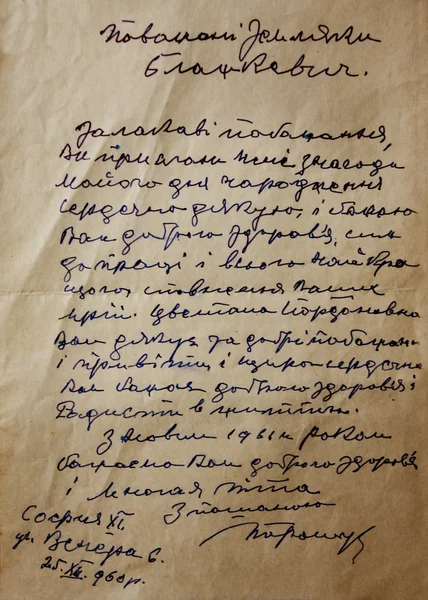 Поважані Земляки
Блашкевич.
За ласкаві побажання,
Ви прислали мені з нагоди
мойого дня народження
сердечно дякую, і бажаю
Вам доброго здоровя, сил
до праці і всього найкра
щого, сповнення Ваших
мрій. Цветана Йордановна
Вам дякує за добрі побажань
і привіти, і щиросердечно
Вам бажає доброго здоровія і
Радости в життю.
З Новим 1961м роком
бажаємо Вам доброго здоровія
і многая літа
З пошаною
София XI.
ул. Венера 6.
25.XII.960р.